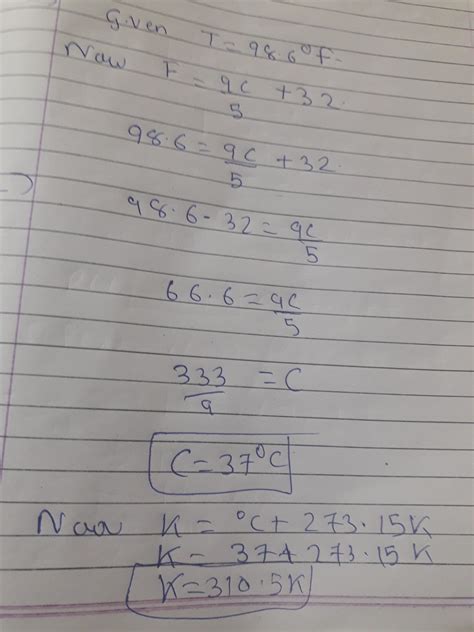 Given T = 98.6°F.
Now F = 9C/5 + 32.
98.6 = 9C/5 + 32.
98.6 - 32 = 9C/5
66.6 = 9C/5
333/9 = C
C = 37°C
Now K = °C + 273.15K
K = 37+273.15K
K = 310.5K